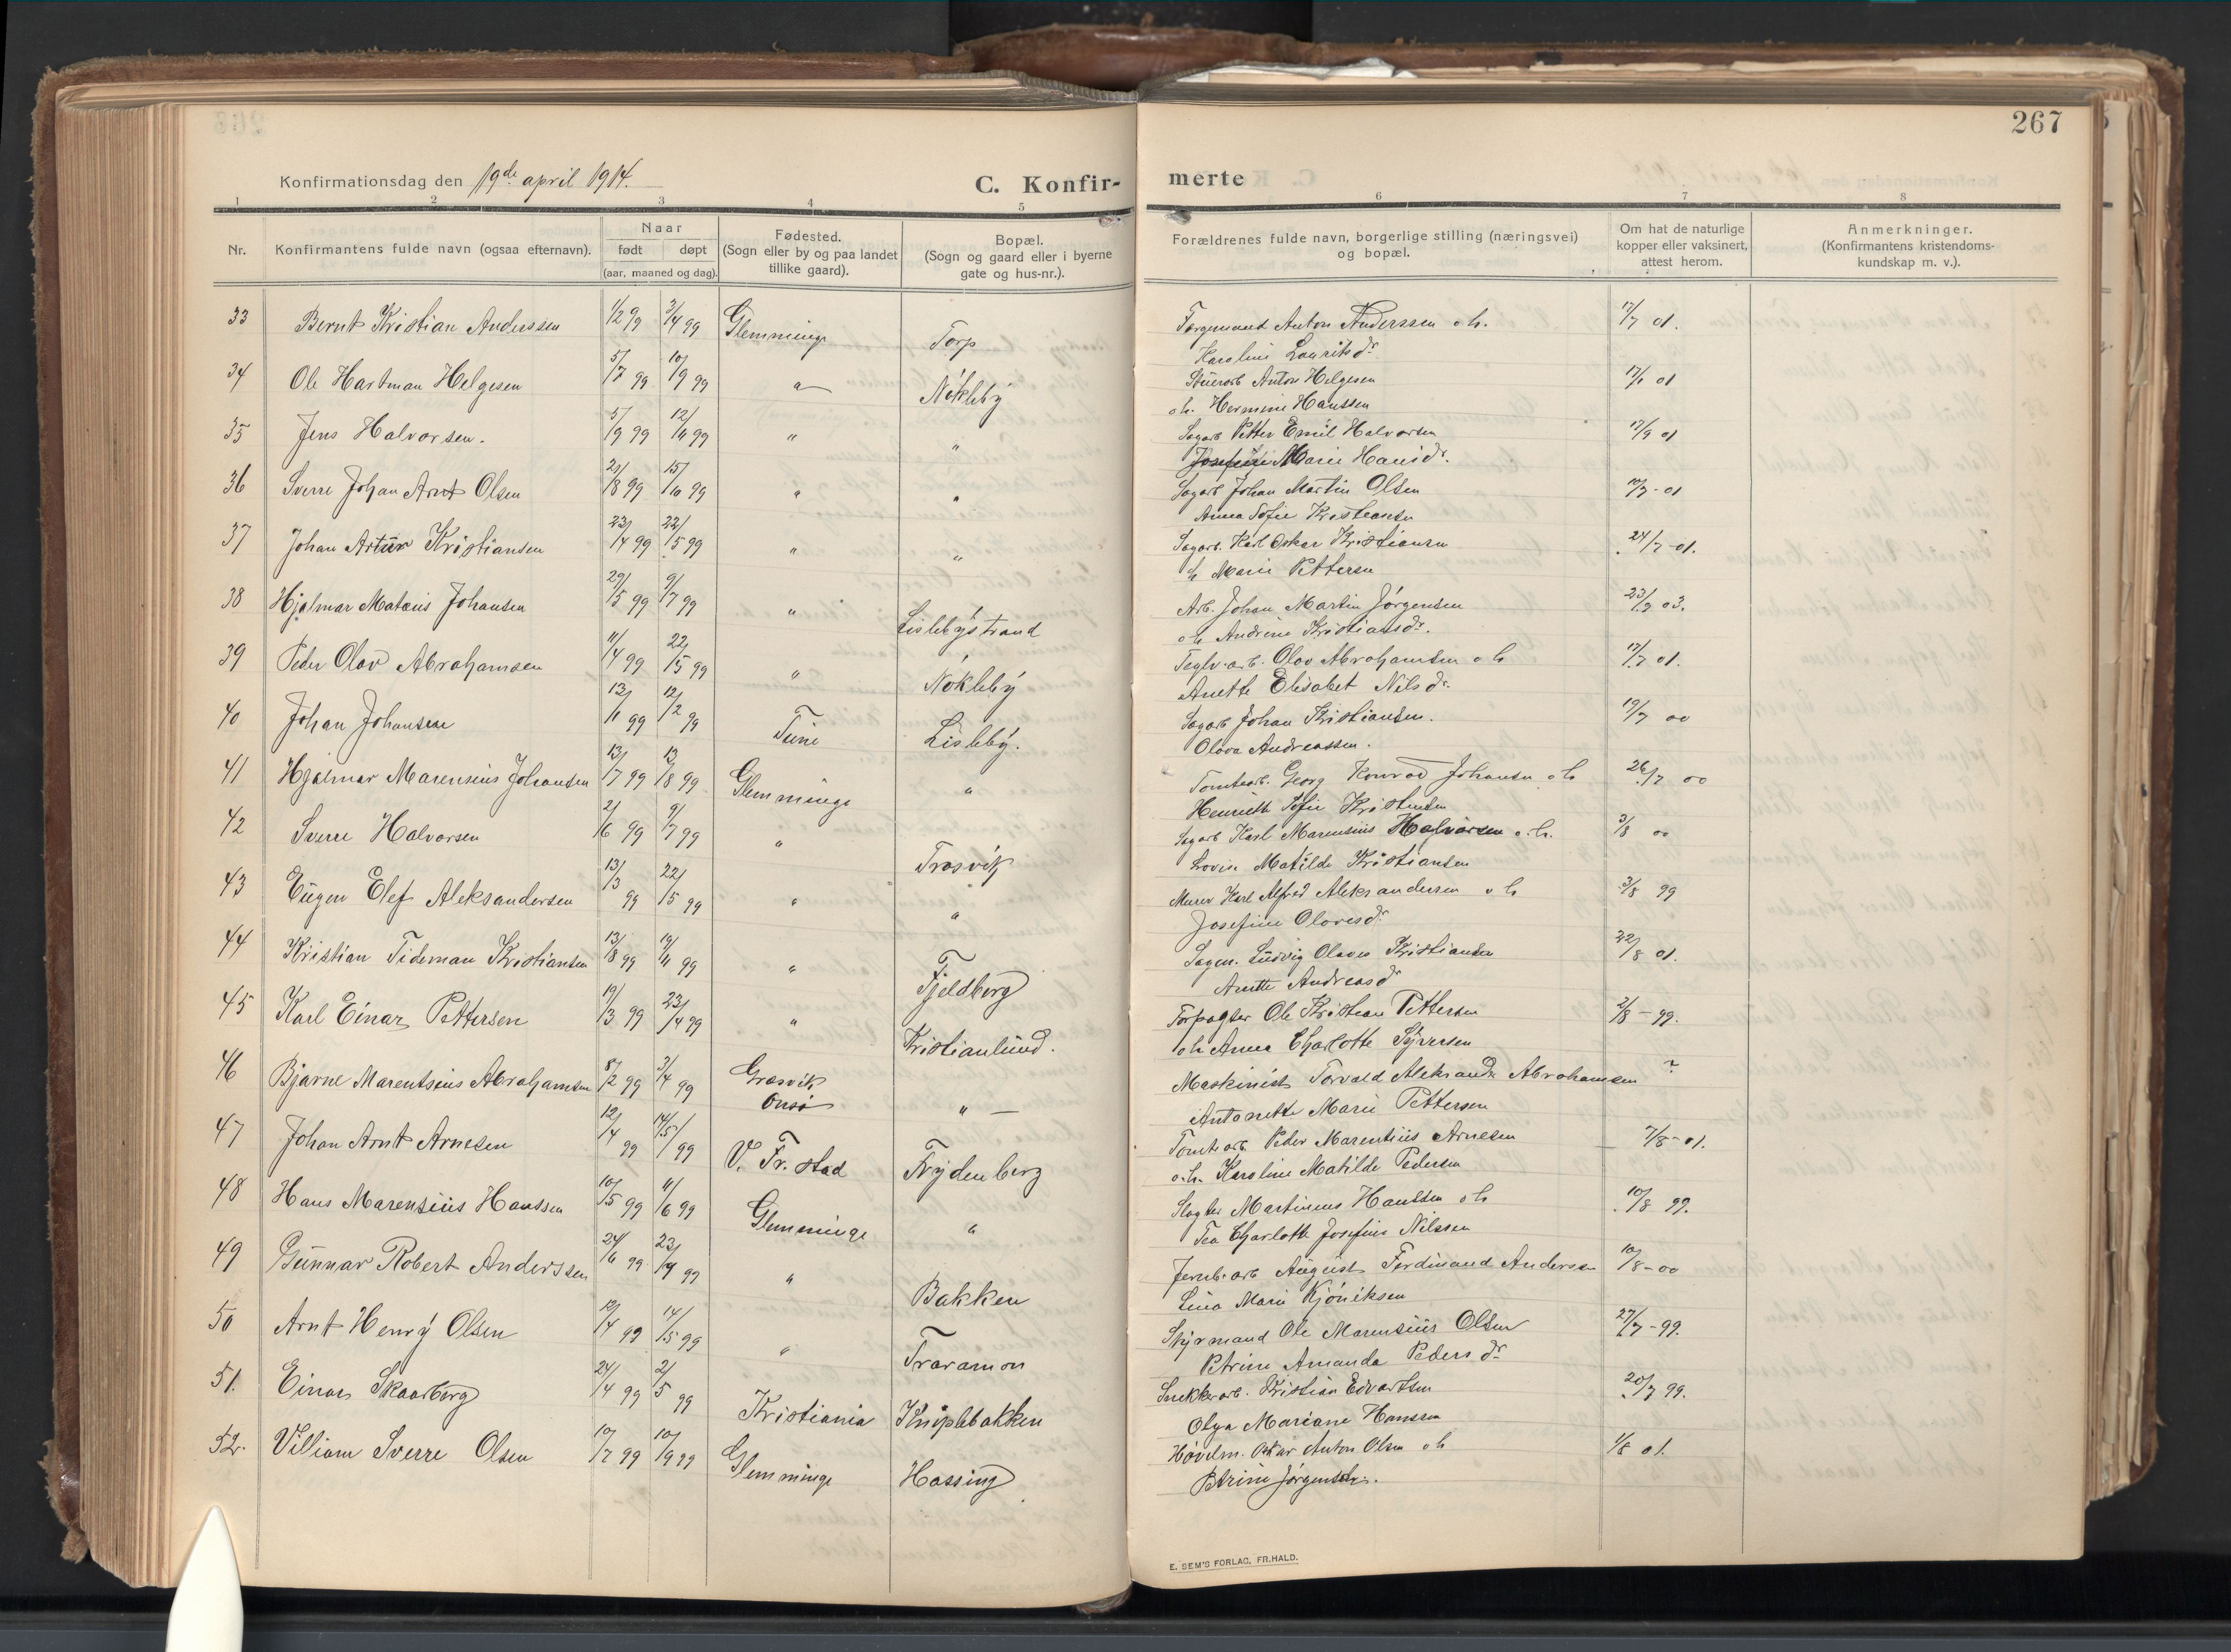 267
Konfirmationsdag den 19de april 1914.
C. Konfir-
merte
1 2 3 4 5 6 7 8
Nr.
Konfirmantens fulde navn (ogsaa efternavn).
Naar
født døpt
(aar, maaned og dag).
Fødested.
(Sogn eller by og paa landet
tillike gaard).
Bopæl.
(Sogn og gaard eller i byerne
gate og hus-nr.).
Forældrenes fulde navn, borgerlige stilling (næringsvei)
og bopæl.
Om hat de naturlige
kopper eller vaksinert,
attest herom.
Anmerkninger.
(Konfirmantens kristendoms-
kundskap m. v.).
33 Bernt Kristian Anderssen 1/2 99 3/4 99 Glemminge Torp Anton Anderssen o h. 17/7 01.
Karoline Lauritsdr
34 Ole Hartman Helgesen 5/7 99 10/9 99 " Nökleby Anton Helgesen 01
o h. Hermine Hanssen
35 Jens Halvorsen. 5/9 99 12/11 99 " " Sagarb Petter Emil Halvorsen 17/9 01
Josefine Marie Hansdr.
36 Sverre Johan Arnt Olsen 8 99 15/10 99 " " Sagarb Johan Martin Olsen 01
Anna Sofie Kristiansen
37 Johan Artur Kristiansen 23/4 99 22/5 99 " " Sagarb. Karl Oskar Kristiansen 24/7-01.
Marie Pettersen
38 Hjalmar Mataus Johansen 29/5 99 9/7 99 " Lislebystrand Arb. Johan Martin Jörgensen 03.
o h Andrine Kristiansdr.
39 Peder Olav Abrahamsen 11/4 99 22/5 99 " Nökleby Teglv.arb. Olav Abrahamsen o h 17/7 01.
Anette Elisabet Nilsdr.
40 Johan Johansen 99 12/2 99 Tune Lisleby. Sagarb Johan Kristiansen. 19/7 00
Olava Andreassen.
41 Hjalmar Marensius Johansen 13/7 99 13/8 99 Glemminge " Tomtearb. Georg Konrad Johansen o h 26/7 00
Henriette Sofie Kristensen
42 Sverre Halvorsen 2/6 99 9/7 99 " Trosvik Sagarb Karl Marensius Halvorsen o.h. 3/8 00
Lovise Matilde Kristiansen
43 Eugen Elef Aleksandersen 13/3 99 22/5 99 " " Murer Karl Alfred Aleksandersen o h 3/8 99
Josefine Olavesdr.
44 Kristian Tideman Kristiansen 13/8 99 19/11 99 " Fjeldberg Ludvig Olaves Kristiansen 22/8 01.
Anette Andreasdr
45 Karl Einar Pettersen 19/3 99 23/4 99 " Kristianlund. Forpagter Ole Kristian Pettersen 2/8-99.
o h Anna Charlotte Syversen
46 Bjarne Marentsius Abrahamsen 8/2 99 3/4 99 Græsvik " Maskinist Torvald Aleksander Abrahamsen ?
Onsö Antonette Marie Pettersen
47 Johan Arnt Arnesen 12/4 99 14/5 99 V. Fr.stad Frydenberg Tomtarb Peder Marentius Arnesen 7/8-01.
o.h. Karoline Matilde Pedersen
48 Hans Marensius Hanssen 10/5 99 11/6 99 Glemminge " Slagter Martinius Hanssen o h 10/8 99.
Tea Charlotte Josefine Nilssen
49 Gunnar Robert Anderssen 24/6 99 23/9 99 " Bakken Jernb.arb August Ferdinand Andersen 10/8-00
Lina Marie Kjöniksen
50 Arnt Henry Olsen 12/4 99 14/5 99 " Traramon Styrmand Ole Marensius Olsen 27/7-99.
Petrine Amanda Pedersdr
51. Einar Skaarberg 24/4 99 2/5 99 Kristiania Kniplebakken Snekkerarb. Kristian Edvartsen 20/7 99.
Olga Mariane Hanssen
52. Villiam Sverre Olsen 10/7 99 10/9 99 Glemminge Hassing Hövelm. Oskar Anton Olsen o h 1/8 01.
Petrine Jörgensdr.
E. SEM'S FORLAG, FR.HALD.